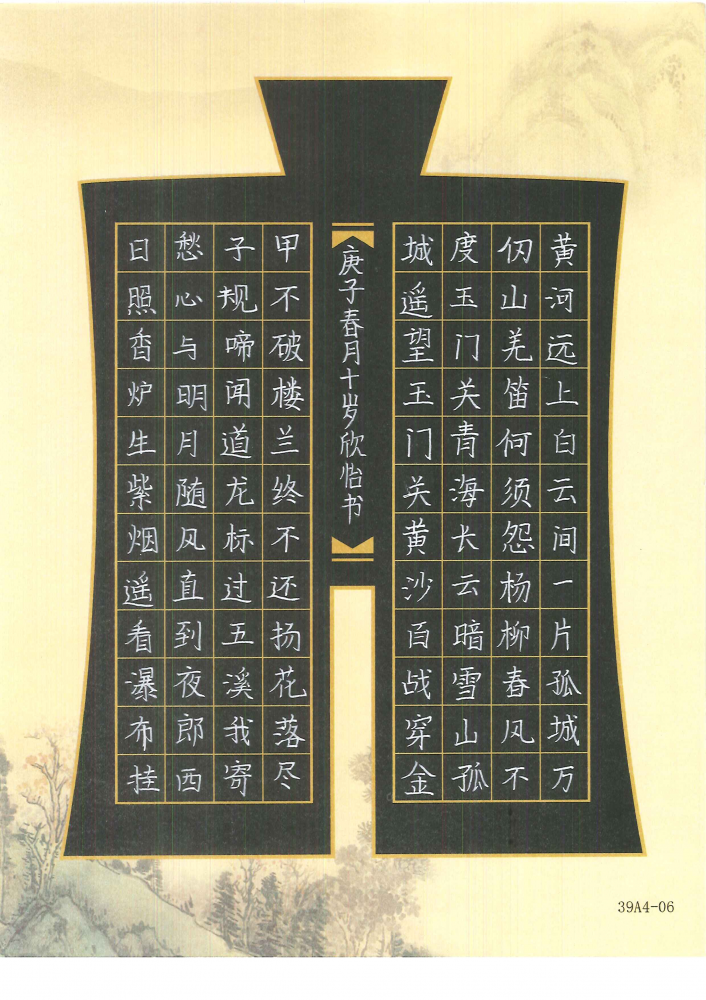 黄河远上白云间一片孤城万
仞山羌笛何须怨杨柳春风不
度玉门关青海长云暗雪山孤
城遥望玉门关黄沙百战穿金
庚子春月十岁欣怡书
甲不破楼兰终不还扬花落尽
子规啼闻道龙标过五溪我寄
愁心与明月随风直到夜郎西
日照香炉生紫烟遥看瀑布挂
39A4-06